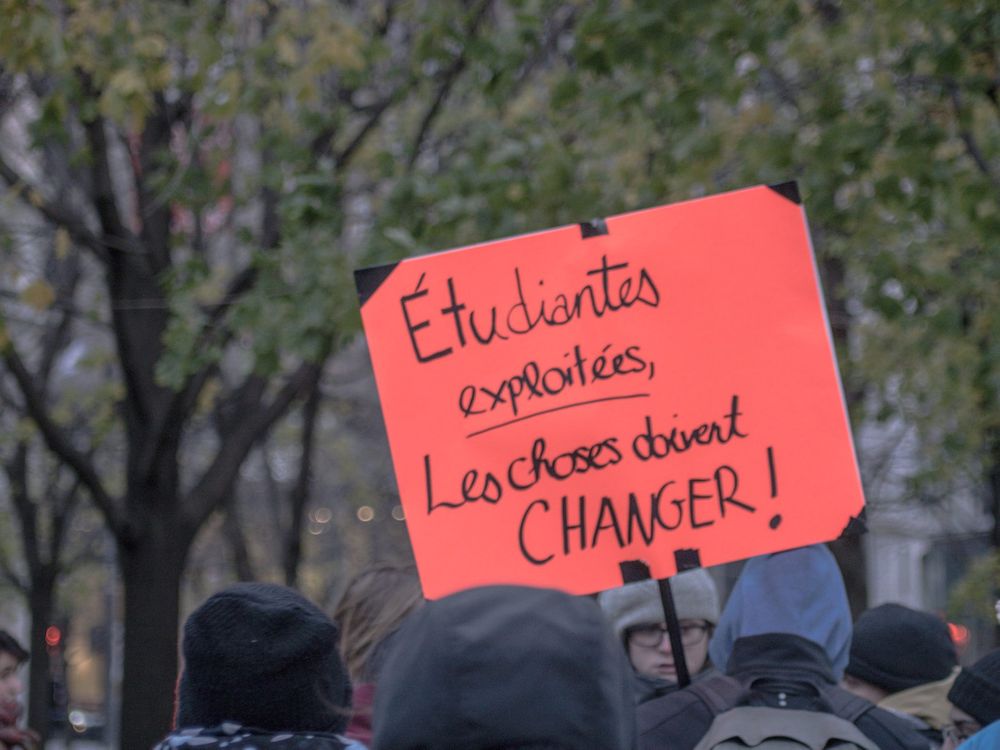 Étudiantes
exploitées,
Les choses doivent
CHANGER!